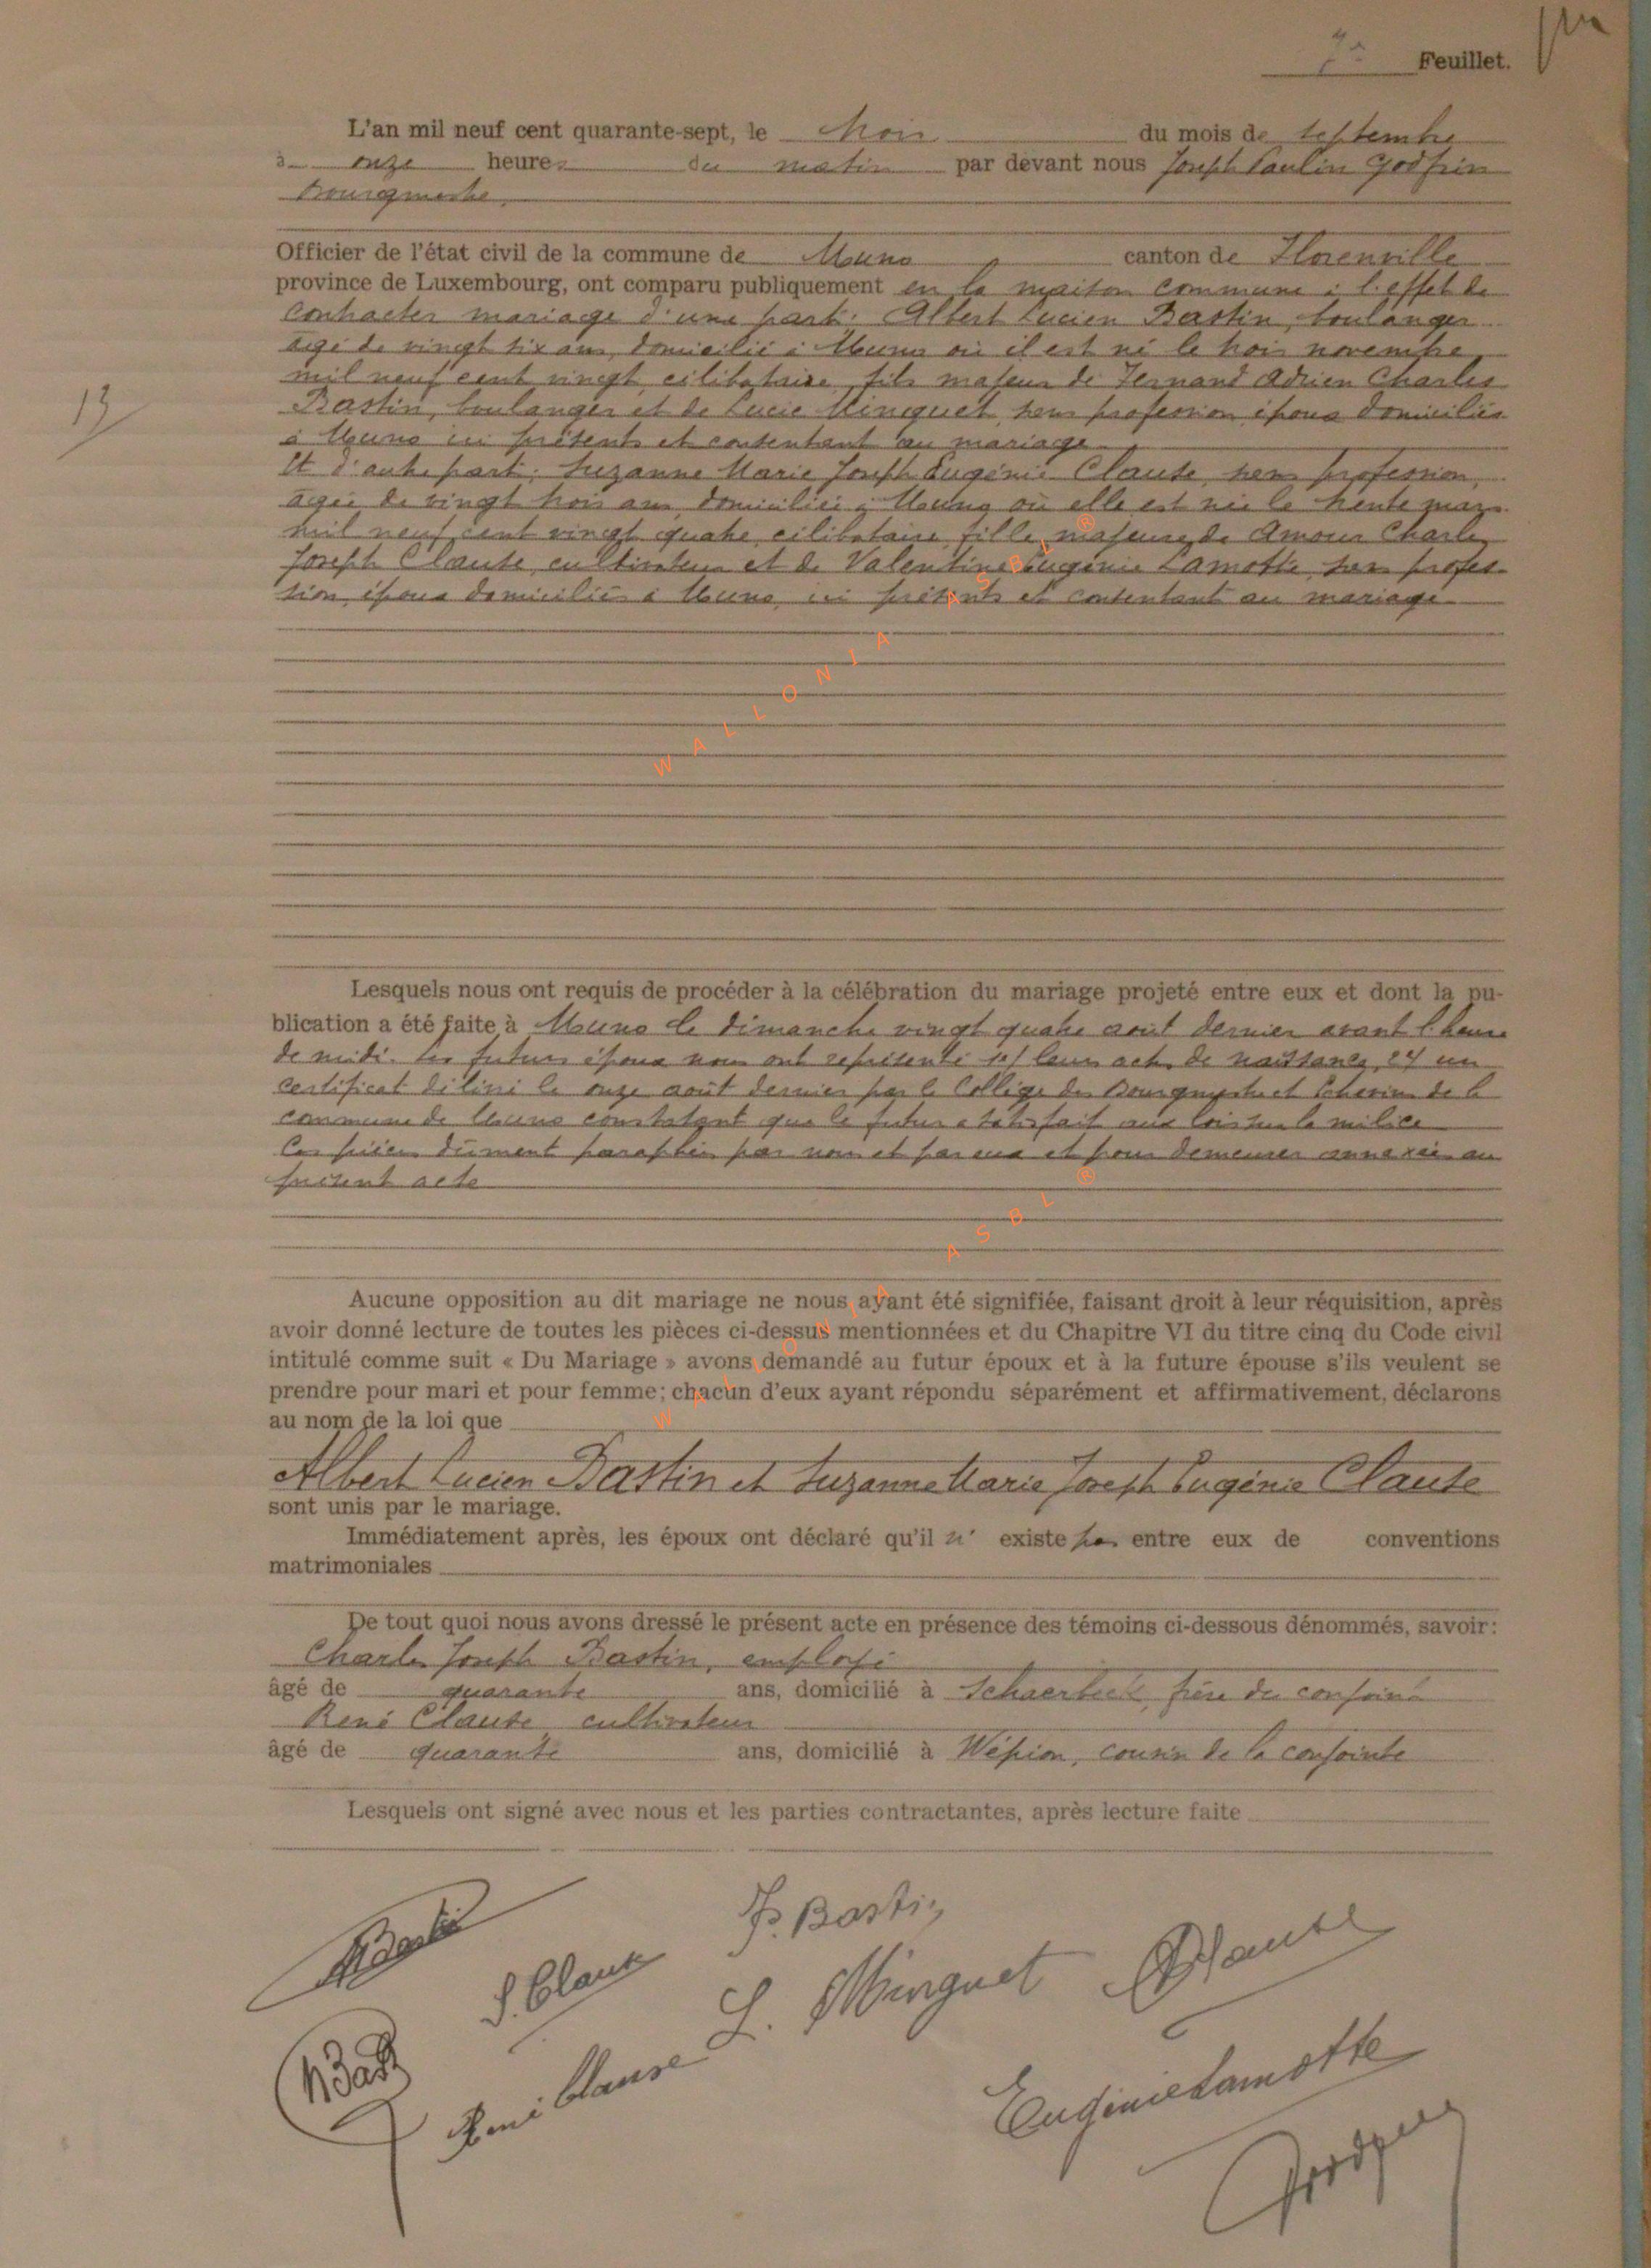 7e Feuillet.
L'an mil neuf cent quarante-sept, le trois du mois de septembre
à onze heures du matin par devant nous Joseph Paulin Godfrin
Bourgmestre,
Officier de l'état civil de la commune de Muno canton de Florenville
province de Luxembourg, ont comparu publiquement en la maison commune à l'effet de
contracter mariage d'une part: Albert Lucien Bastin, boulanger
âgé de vingt six ans, domicilié à Muno où il est né le trois novembre
mil neuf cent vingt, célibataire, fils majeur de Fernand Adrien Charles
Bastin, boulanger et de Lucie Minguet, sans profession, époux domiciliés
à Muno ici présents et consentant au mariage
13
Et d'autre part: Suzanne Marie Joseph Eugénie Clause, sans profession,
âgée de vingt trois ans domiciliée à Muno où elle est née le trente mars
mil neuf cent vingt quatre, célibataire, fille majeure de Amour Charles
Joseph Clause, cultivateur et de Valentine Eugénie Lamotte, sans profes-
sion, époux domiciliés à Muno, ici présents et consentant au mariage
WALLONIA ASBL ®
Lesquels nous ont requis de procéder à la célébration du mariage projeté entre eux et dont la pu-
blication a été faite à Muno le dimanche vingt quatre août dernier avant l'heure
de midi. Les futurs époux nous ont représenté 1°/ leurs actes de naissance, 2°/ un
certificat délivré le onze août dernier par le Collège des Bourgmestre et Echevins de la
commune de Muno constatant que le futur a satisfait aux lois sur la milice
Ces pièces dûment paraphées par nous et par eux et pour demeurer annexées au
présent acte
Aucune opposition au dit mariage ne nous ayant été signifiée, faisant droit à leur réquisition, après
avoir donné lecture de toutes les pièces ci-dessus mentionnées et du Chapitre VI du titre cinq du Code civil
intitulé comme suit « Du Mariage » avons demandé au futur époux et à la future épouse s'ils veulent se
prendre pour mari et pour femme; chacun d'eux ayant répondu séparément et affirmativement, déclarons
au nom de la loi que
Albert Lucien Bastin et Suzanne Marie Joseph Eugénie Clause
sont unis par le mariage.
Immédiatement après, les époux ont déclaré qu'il n' existe pas entre eux de conventions
matrimoniales
De tout quoi nous avons dressé le présent acte en présence des témoins ci-dessous dénommés, savoir:
Charles Joseph Bastin, employé
âgé de quarante ans, domicilié à Schaerbeek, frère du conjoint
René Clause cultivateur
âgé de quarante ans, domicilié à Wépion, cousin de la conjointe
Lesquels ont signé avec nous et les parties contractantes, après lecture faite
WALLONIA ASBL ®
F. Bastin
S. Clause
L. Minguet
Clause
René Clause
Eugénie Lamotte
Godfrin